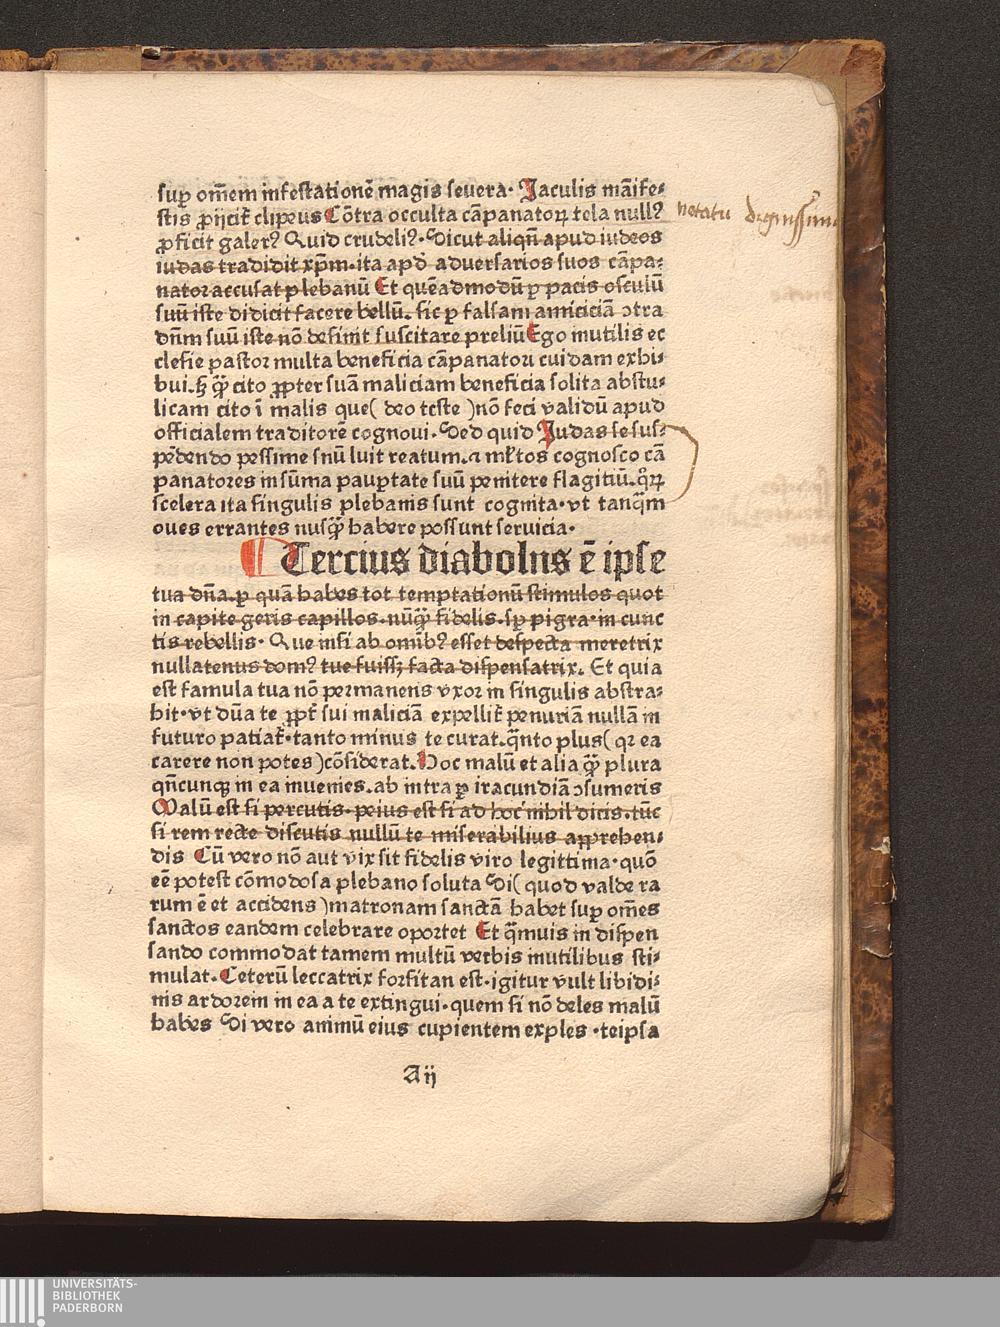 sup om̄em infestationē magis severa· Jaculis māife⸗
stis ꝓijcit᷑ clipeus Cōtra occulta cāpanatoꝝ tela null⁹
ꝓficit galer⁹ Quid crudeli⁹· Sicut aliqn̄ apud iudeos
iudas tradidit xp̄m·ita apd̓ aduersarios suos cāpa⸗
nator accusat plebanū Et quēadmodū ꝑ pacis osculū
suū iste didicit facere bellū· sic ꝑ falsam amiciciā ɔtra
dn̄m suū iste nō desinit suscitare preliū Ego inutilis ec
clesie pastor multa beneficia cāpanatori cuidam exhi⸗
bui·ſꝫ qꝫ̄ cito ꝓpter suā maliciam beneficia solita abstu⸗
licam cito ī malis que( deo teste )nō feci validū apud
officialem traditorē cognoui· Sed quid Judas se sus⸗
pēdendo pessime snū luit reatum·⁊ ml̄tos cognosco cā
panatores in sūma paupertate suū penitere flagitiū·qr̄ꝝ
scelera ita singulis plebanis sunt cognita·vt tanq̄m
oues errantes nusqꝫ̄ habere possunt seruicia·
Tercius diabolus ē ipse
tua dn̄a·ꝑ quā habes tot temptationū stimulos quot
in capite geris capillos·nūqꝫ̄ fidelis·sꝑ pigra·in cunc
tis rebellis· Que nisi ab omīb⁹ esset despecta meretrix
nullatenus dom⁹ tue fuissꝫ facta dispensatrix· Et quia
est famula tua nō permanens vxor in singulis abstra⸗
hit·vt dūa te ꝓpt᷑ sui maliciā expellit᷑ penuriā nullā in
futuro patiat᷑·tanto minus te curat·q̄nto plus( qꝛ ea
carere non potes )cōsiderat·Hoc malū et alia qꝫ̄ plura
qn̄cunqꝫ in ea inuenies·ab intra ꝑ iracundiā ɔsumeris
Malū est si percutis·peius est si ad hoc nihil dicis·tūc
si rem recte discutis nullū te miserabilius apprehen⸗
dis Cū vero nō aut vix sit fidelis viro legittima·quō
eē potest cōmodosa plebano soluta Si( quod valde ra
rum ē et accidens )matronam sanctā habet sup om̄es
sanctos eandem celebrare oportet Et q̄muis in dispen
sando commodat tamem multū verbis inutilibus sti⸗
mulat·Ceterū leccatrix forsitan est·igitur vult libidi⸗
nis ardorem in ea a te extingui·quem si nō deles malū
habes Si vero animū eius cupientem exples·teipsa
Aij
notatu dignissima
UNIVERSITÄTS-
BIBLIOTHEK
PADERBORN